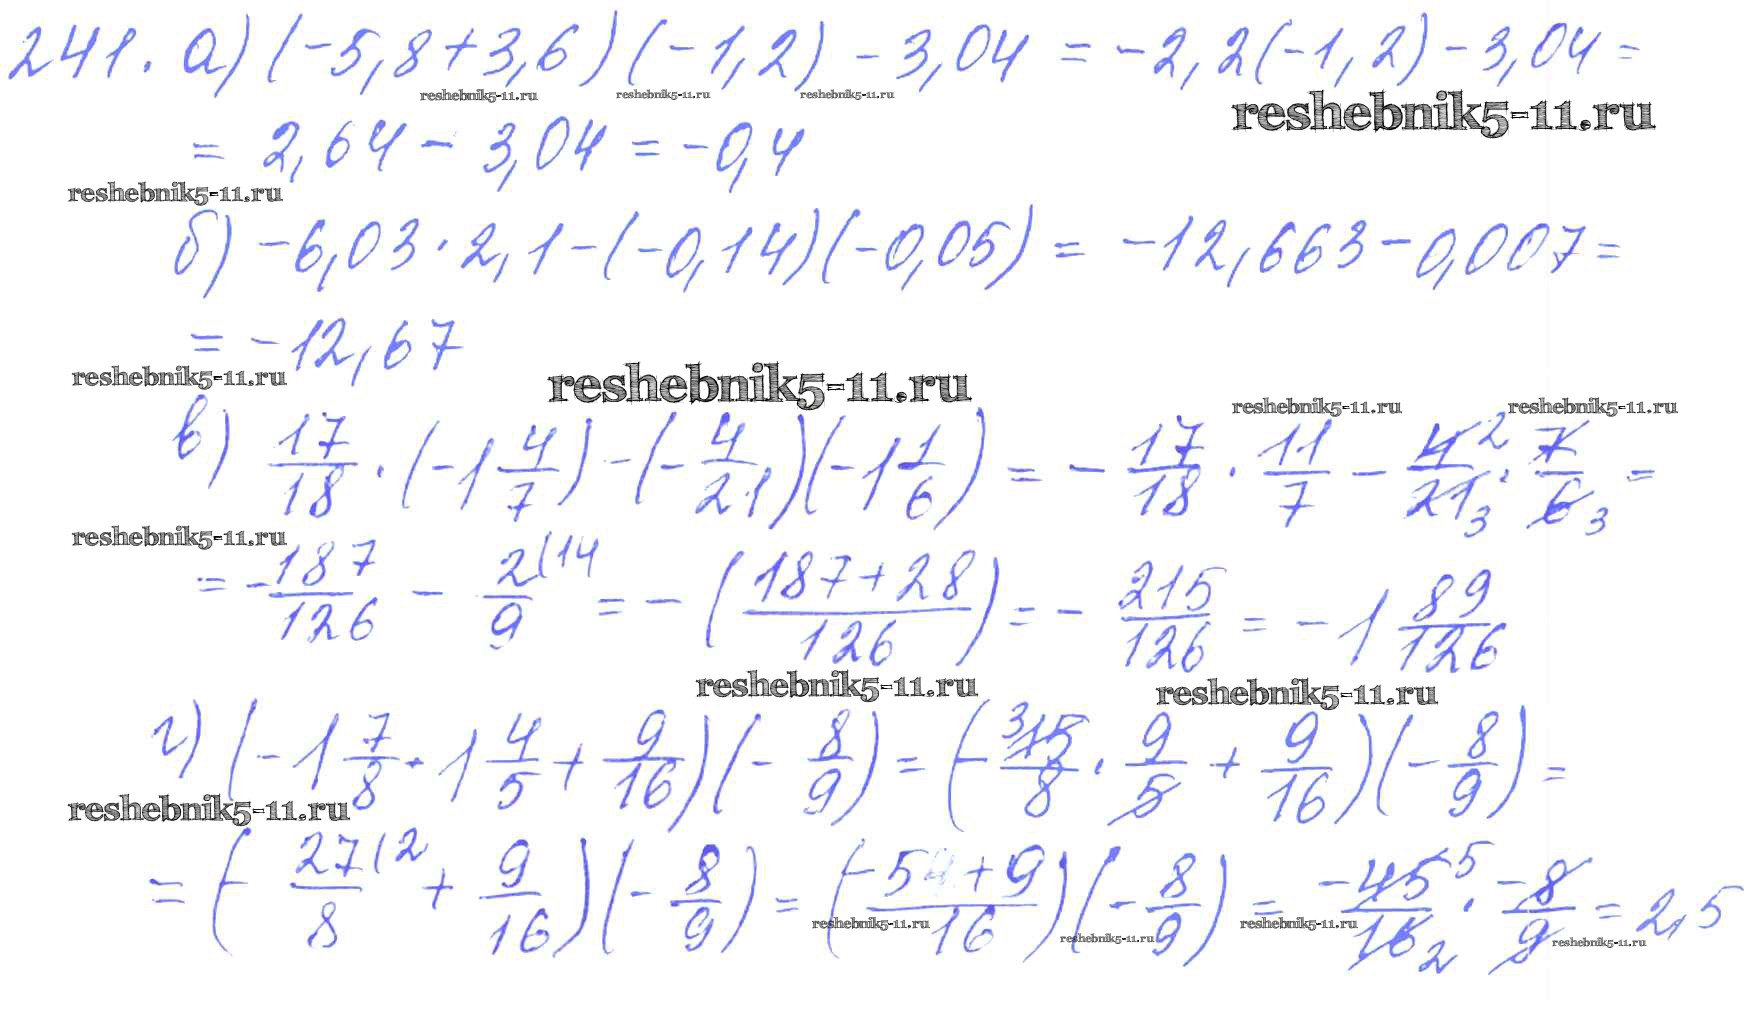 241. а) (-5,8+3,6)(-1,2) - 3,04 = -2,2(-1,2) - 3,04 =
reshebnik5-11.ru reshebnik5-11.ru reshebnik5-11.ru reshebnik5-11.ru
= 2,64 - 3,04 = -0,4
reshebnik5-11.ru
б) -6,03 · 2,1 - (-0,14)(-0,05) = -12,663 - 0,007 =
= -12,67
reshebnik5-11.ru reshebnik5-11.ru reshebnik5-11.ru reshebnik5-11.ru
в) 17/18 · (-1 4/7) - (-4/21)(-1 1/6) = - 17/18 · 11/7 - 4 2/21 3 · 7/6 3 =
reshebnik5-11.ru
= - 187/126 - 2(14/9 = - (187+28/126) = - 215/126 = -1 89/126
reshebnik5-11.ru reshebnik5-11.ru
г) (-1 7/8 · 1 4/5 + 9/16)(- 8/9) = (- 3 15/8 · 9/5 + 9/16)(- 8/9) =
reshebnik5-11.ru
= (- 27(2/8 + 9/16)(- 8/9) = (-54+9/16)(- 8/9) = -45 5/16 2 · -8/9 = 2,5
reshebnik5-11.ru reshebnik5-11.ru reshebnik5-11.ru reshebnik5-11.ru